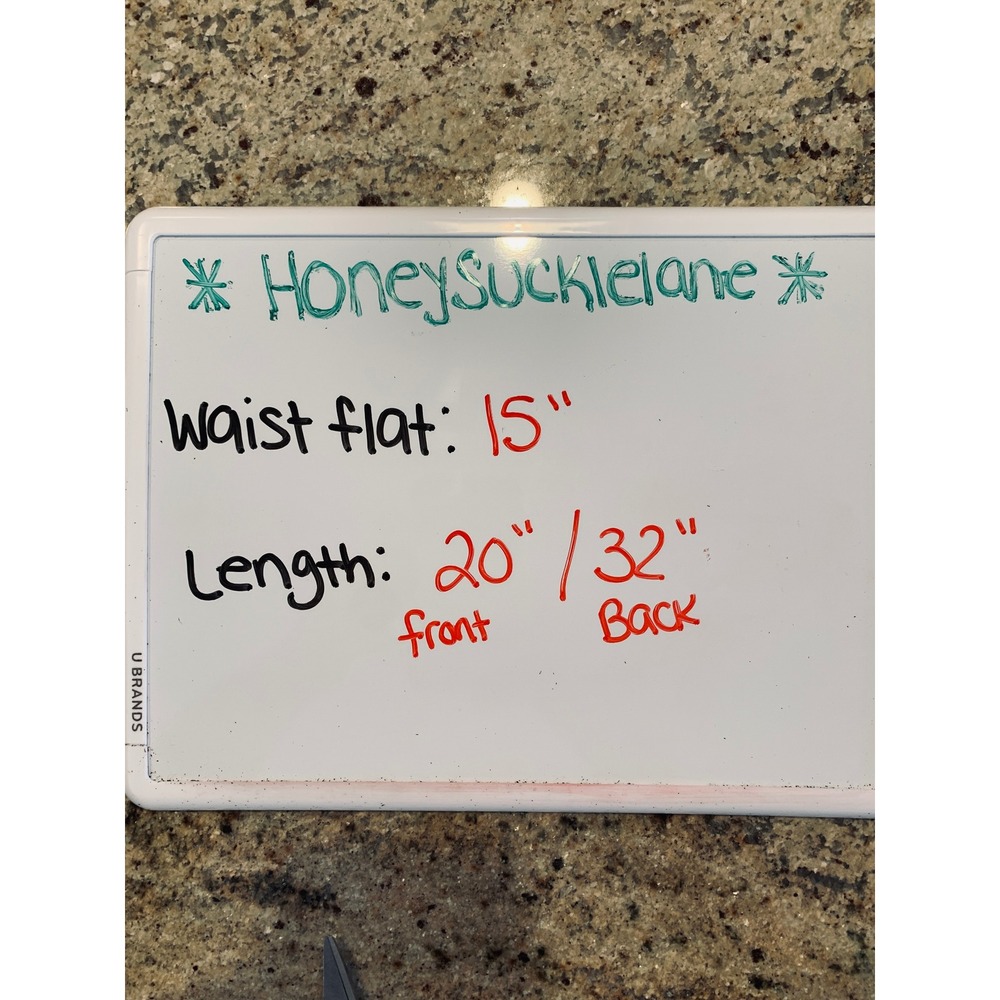 * HoneySucklelane *
Waist flat: 15"
Length: 20" / 32"
front Back
U BRANDS